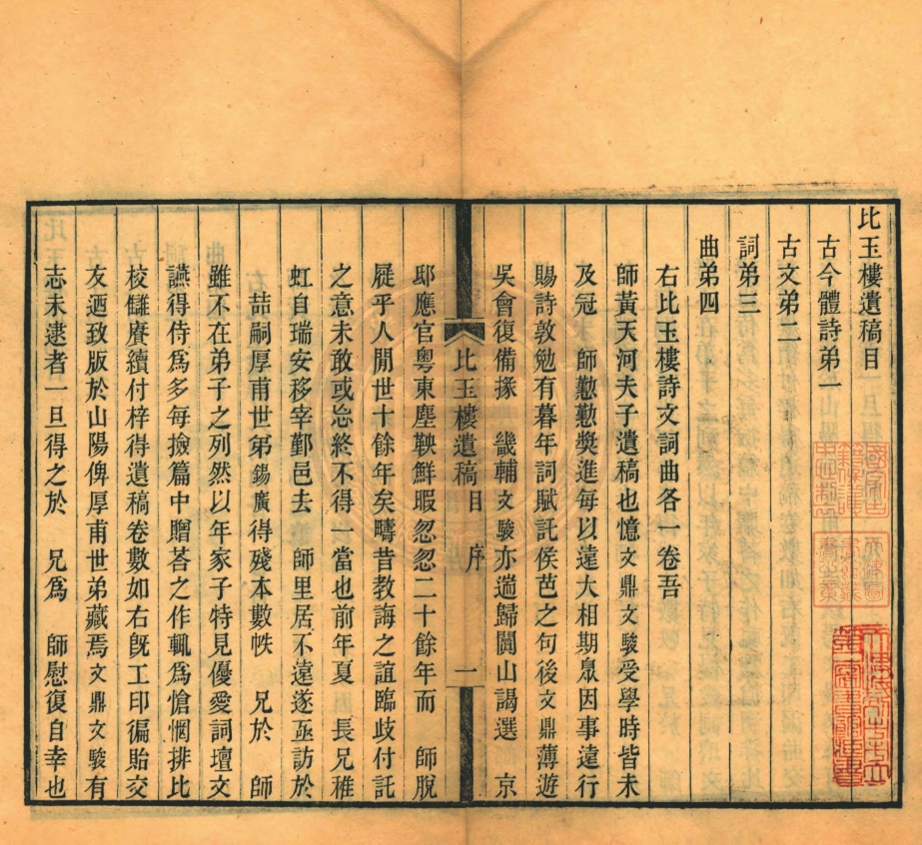 比玉樓遺稿目
古今體詩弟一
古文弟二
詞弟三
曲弟四
右比玉樓詩文詞曲各一卷吾
師黃天河夫子遺稿也憶文鼎文駿受學時皆未
及冠　師懃懃奬進每以遠大相期鼎因事遠行
賜詩敦勉有暮年詞賦託侯芭之句後文鼎薄遊
吳會復備掾　畿輔文駿亦遄歸閩山謁選　京
比玉樓遺稿目　序　一
邸應官粵東塵鞅鮮暇忽忽二十餘年而　師脫
屣乎人閒世十餘年矣疇昔教誨之誼臨歧付託
之意未敢或忘終不得一當也前年夏　長兄稚
虹自瑞安移宰鄞邑去　師里居不遠遂亟訪於
喆嗣厚甫世弟錫廣得殘本數帙　兄於　師
雖不在弟子之列然以年家子特見優愛詞壇文
讌得侍為多每撿篇中贈荅之作輒為愴惘排比
校讎賡續付梓得遺稿卷數如右旣工印徧貽交
友迺致版於山陽俾厚甫世弟藏焉文鼎文駿有
志未逮者一旦得之於　兄為　師慰復自幸也